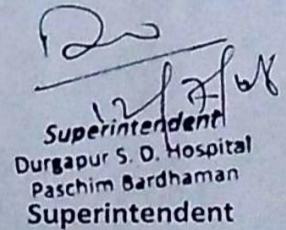 Superintendent
Durgapur S. D. Hospital
Paschim Bardhaman
Superintendent